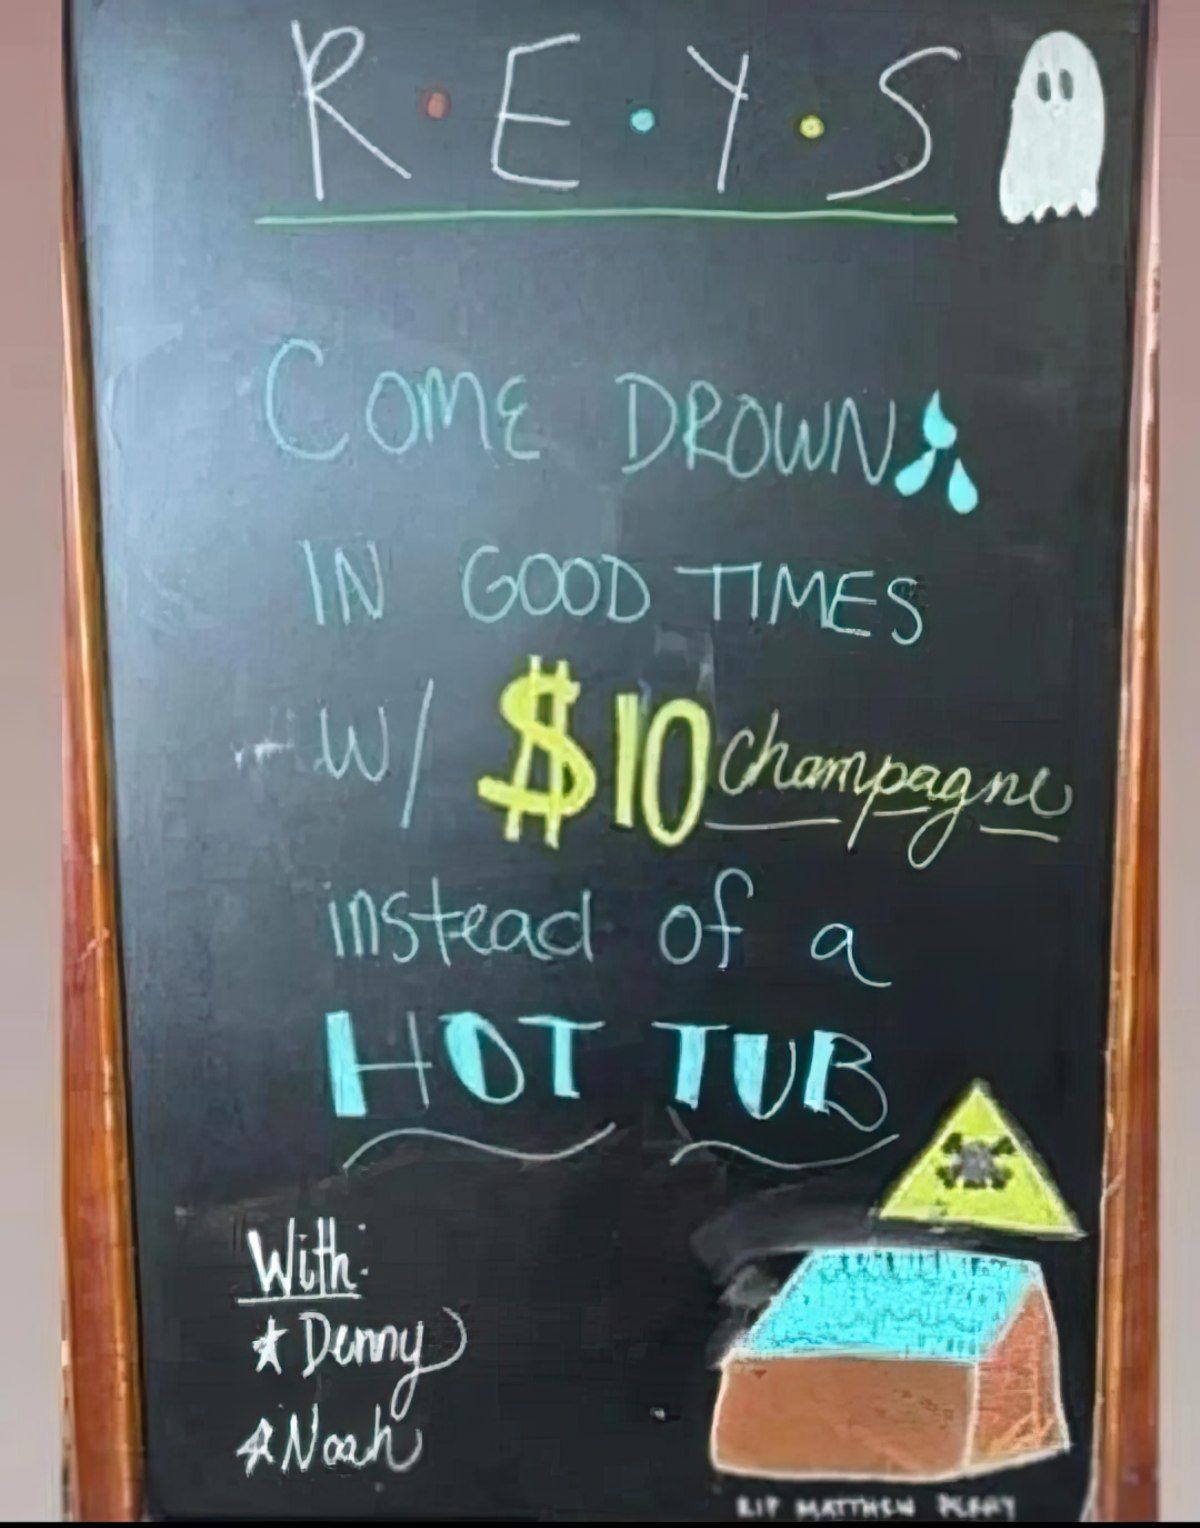 R·E·Y·S
COME DROWN
IN GOOD TIMES
W/ $10 champagne
instead of a
HOT TUB
With:
Denny
Noah
RIP MATTHEW PERRY